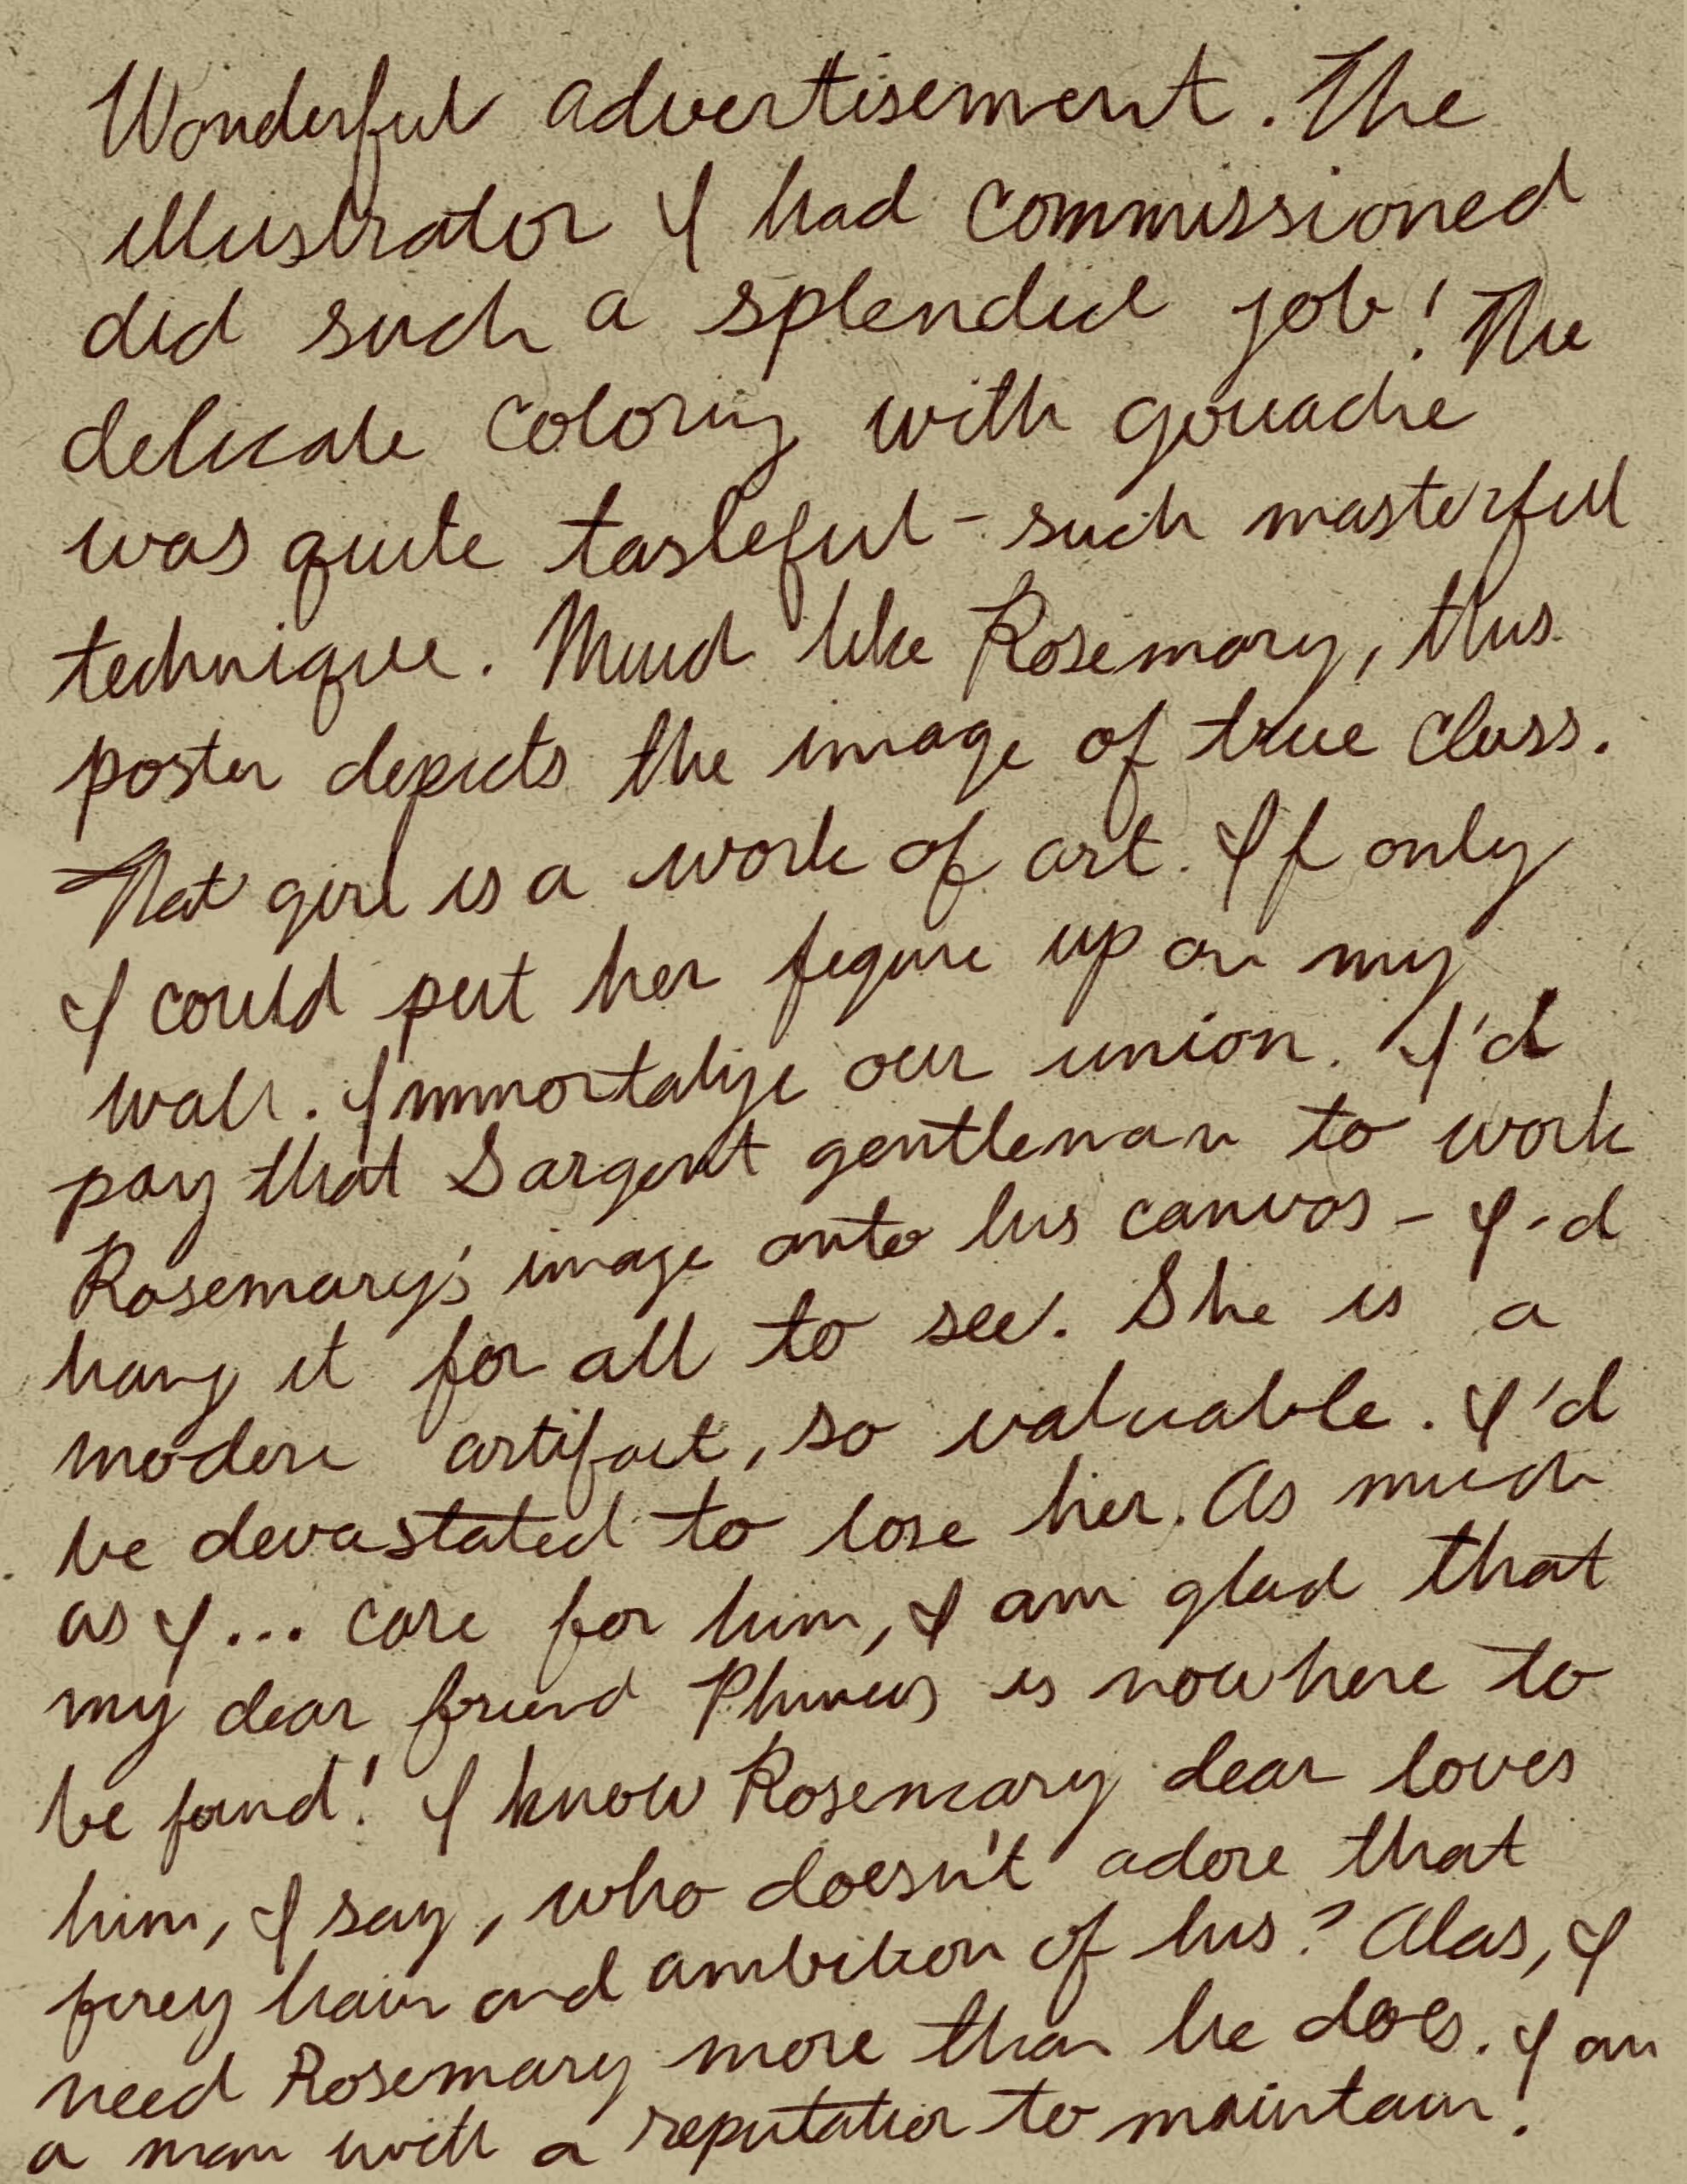 Wonderful advertisement. The
illustrator I had commissioned
did such a splendid job! The
delicate coloring with gouache
was quite tasteful - such masterful
technique. Much like Rosemary, this
poster depicts the image of true class.
That girl is a work of art. If only
I could put her figure up on my
wall. Immortalize our union. I'd
pay that Sargent gentleman to work
Rosemary's image onto his canvas - I'd
hang it for all to see. She is a
modern artifact, so valuable. I'd
be devastated to lose her. As much
as I... care for him, I am glad that
my dear friend Phineus is nowhere to
be found! I know Rosemary dear loves
him, I say, who doesn't adore that
firey hair and ambition of his? Alas, I
need Rosemary more than he does. I am
a man with a reputation to maintain!